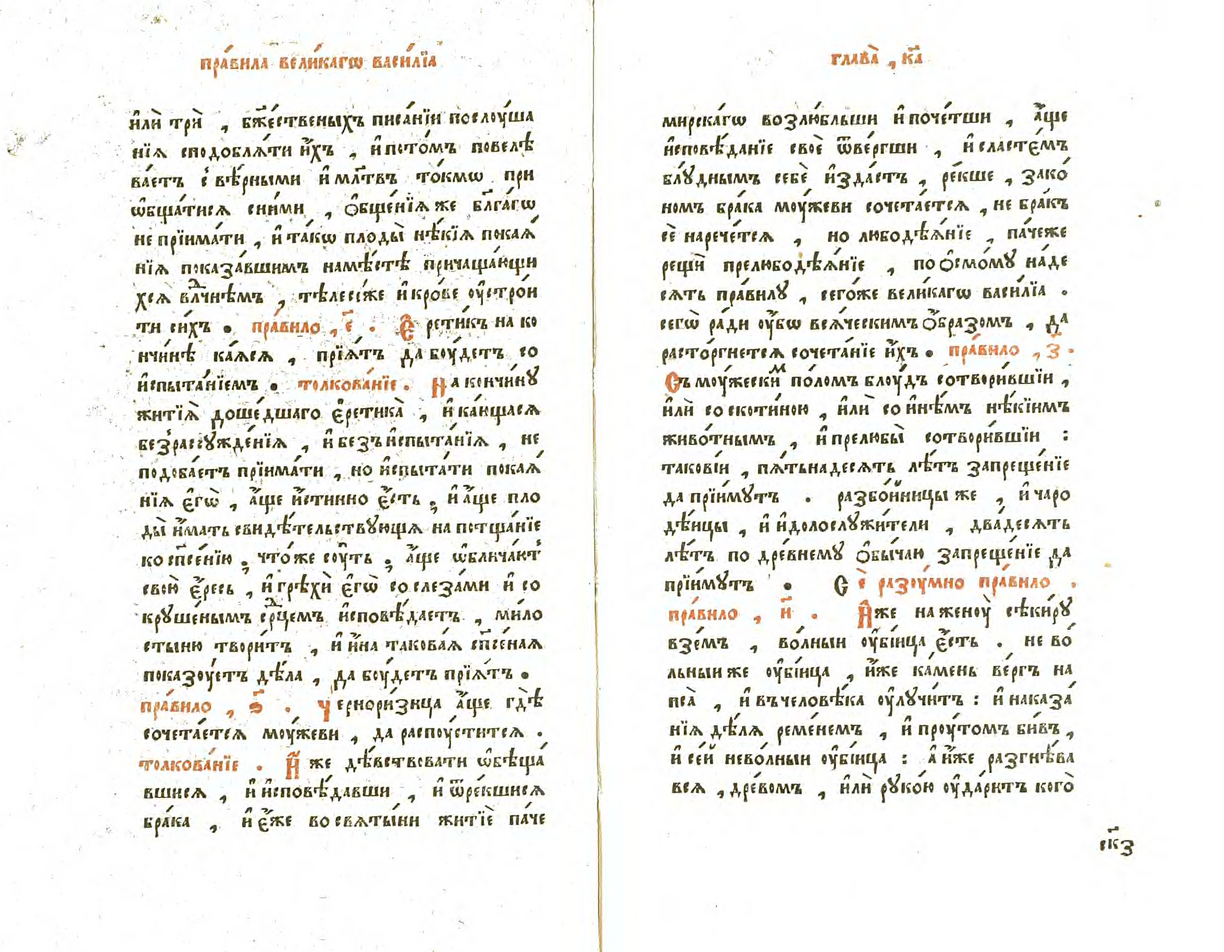 пра́вила вели́кагѡ васи́лїа
и҆лѝ трѝ , бж҃е́ственыхъ писа́нїи послоу́ша
нїѧ сподоблѧ́ти и҆̀хъ , и҆ пото́мъ повелѣ
ва́етъ с̾ вѣ́рными и҆ мл҃твъ то́кмѡ при
ѡ҆бща́тисѧ сни́ми , ѻ҆бще́нїѧ же бл҃га́гѡ
не прїима́ти , и҆ та́кѡ плоды̀ нѣ́кїѧ покаѧ́
нїѧ показа́вшимъ намѣ́стѣ причаща́ющи
хсѧ влⷣчнѣмъ , тѣлесѝже и҆ кро́ве оу҆стро́и
ти си́хъ . пра́вило , е҃ . Е҆рети́къ на ко
нчи́нѣ ка́ѧсѧ , прїѧ́тъ да боу́детъ со
и҆спыта́нїемъ . толкова́нїе . На кончи́нꙋ
житїѧ̀ доше́дшаго є҆ретика̀ , и҆ ка́ющасѧ
безрасꙋжде́нїѧ , и҆ безъи҆спыта́нїѧ , не
подоба́етъ прїима́ти , но и҆спыта́ти покаѧ́
нїѧ є҆гѡ̀ , а҆́ще и҆́стинно є҆́сть , и҆ а҆́ще пло
ды̀ и҆́мать свидѣ́тельствꙋющїѧ на потща́нїе
ко спⷭ҇е́нїю , что́же соу́ть , а҆́ще ѡ҆блича́ютъ
свою̀ є҆́ресь , и҆ грѣхѝ є҆гѡ̀ со слеза́ми и҆ со
крꙋше́нымъ срⷣцемъ и҆сповѣ́даетъ , ми́ло
стыню твори́тъ , и҆ и҆́на такова́ѧ спⷭ҇е́наѧ
показоу́етъ дѣ́ла , да боу́детъ прїѧ́тъ .
пра́вило , ѕ҃ . Черноризица а҆́ще гдѣ̀
сочета́етсѧ моу́жеви , да распоу́ститсѧ .
толкова́нїе . Ꙗ҆̀же дѣ́вствовати ѡ҆бѣща́
вшисѧ , и҆ и҆сповѣ́давши , и҆ ѿре́кшисѧ
бра́ка , и҆ є҆́же во свѧты́ни житїѐ па́че
глава̀ , к҃а
мирска́гѡ возлю́бльши и҆ поче́тши , а҆́ще
и҆сповѣ́данїе своѐ ѿве́ргши , и҆ сласте́мъ
блꙋ́днымъ себѐ и҆зда́стъ , ре́кше , зако́
номъ бра́ка моу́жеви сочета́етсѧ , не бра́къ
сѐ нарече́тсѧ , но любодѣѧ́нїе , па́чеже
рещѝ прелюбодѣѧ́нїе , по ѻ҆смо́мꙋ на́де
сѧть пра́вилꙋ , сего́же вели́кагѡ васи́лїа .
сегѡ̀ ра́ди оу҆̀бѡ всѧ́ческимъ ѻ҆́бразомъ , да
расто́ргнетсѧ сочета́нїе и҆̀хъ . пра́вило , з҃ .
Съ моу́жескиⷨ по́ломъ блоу́дъ сотвори́вшїи ,
и҆лѝ со скоти́ною , и҆лѝ со и҆нѣ́мъ нѣ́кїимъ
живо́тнымъ , и҆ прелюбы̀ сотвори́вшїи :
такові́и , пѧтьна́десѧть лѣ́тъ запреще́нїе
да прїи́мꙋтъ . разбо́йницы же , и҆ чаро
дѣ́ицы , и҆ и҆долослꙋжи́тели , два́десѧть
лѣ́тъ по дре́внемꙋ ѻ҆бы́чаю запреще́нїе да
прїи́мꙋтъ . Сѐ разоу́мно пра́вило .
пра́вило , и҃ . И҆́же на женоу̀ сѣки́рꙋ
взе́мъ , во́лныи оу҆бі́ица є҆́сть . не во́
льныи же оу҆бі́ица , и҆́же ка́мень ве́ргъ на
пса̀ , и҆ въ человѣ́ка оу҆лꙋчи́тъ : и҆ наказа́
нїѧ дѣ́лѧ реме́немъ , и҆ проу́томъ би́въ ,
и҆ се́й нево́лныи оу҆бі́ица : а҆ и҆́же разгнѣ́ва
всѧ , дре́вомъ , и҆лѝ рꙋко́ю оу҆да́ритъ кого̀
ск҃з